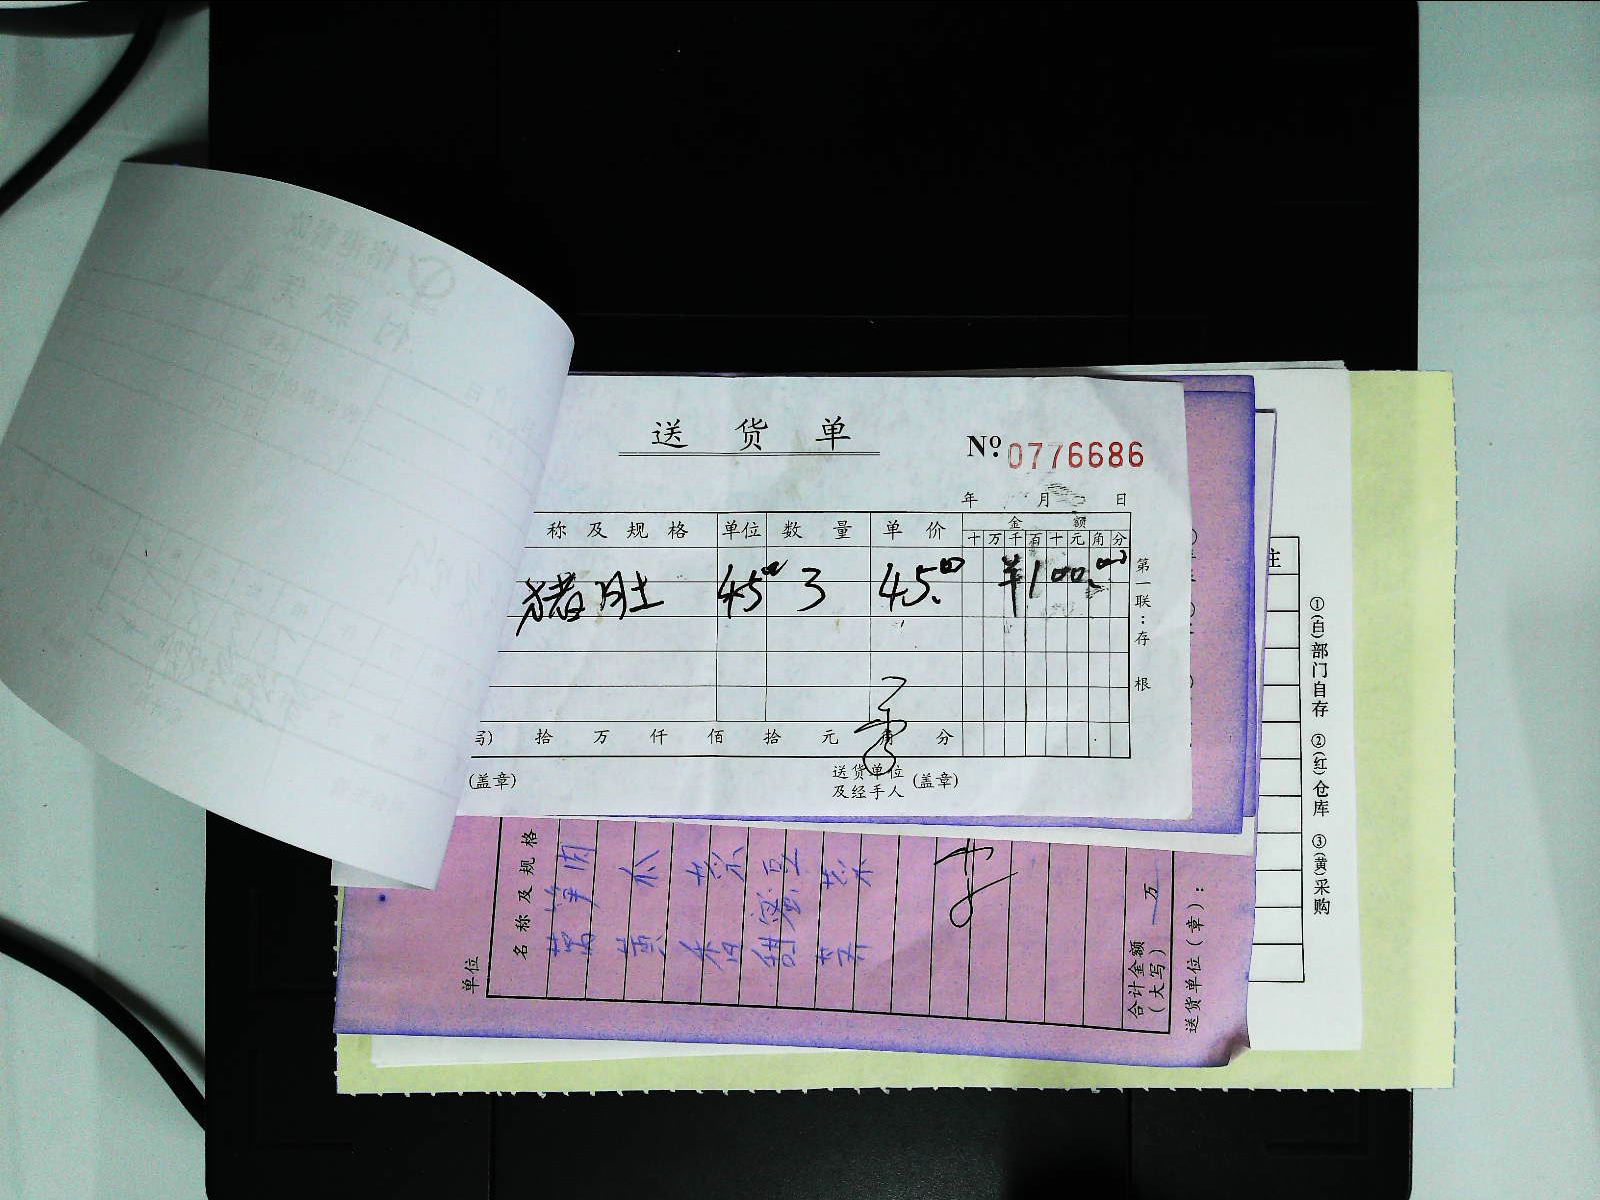 送货单
№ 0776686
年 月 日
称及规格 单位 数量 单价 金额
十 万 千 百 十 元 角 分
猪肚 45.00 3 45.00 ¥100.00
第一联：存根
写) 拾 万 仟 佰 拾 元 角 分
(盖章) 送货单位及经手人 (盖章)
注
①(白)部门自存 ②(红)仓库 ③(黄)采购
单位
名称及规格
莴笋肉
黄瓜
香菜
甜蜜豆
芹菜
合计金额(大写) 万
送货单位(章):
付款凭证